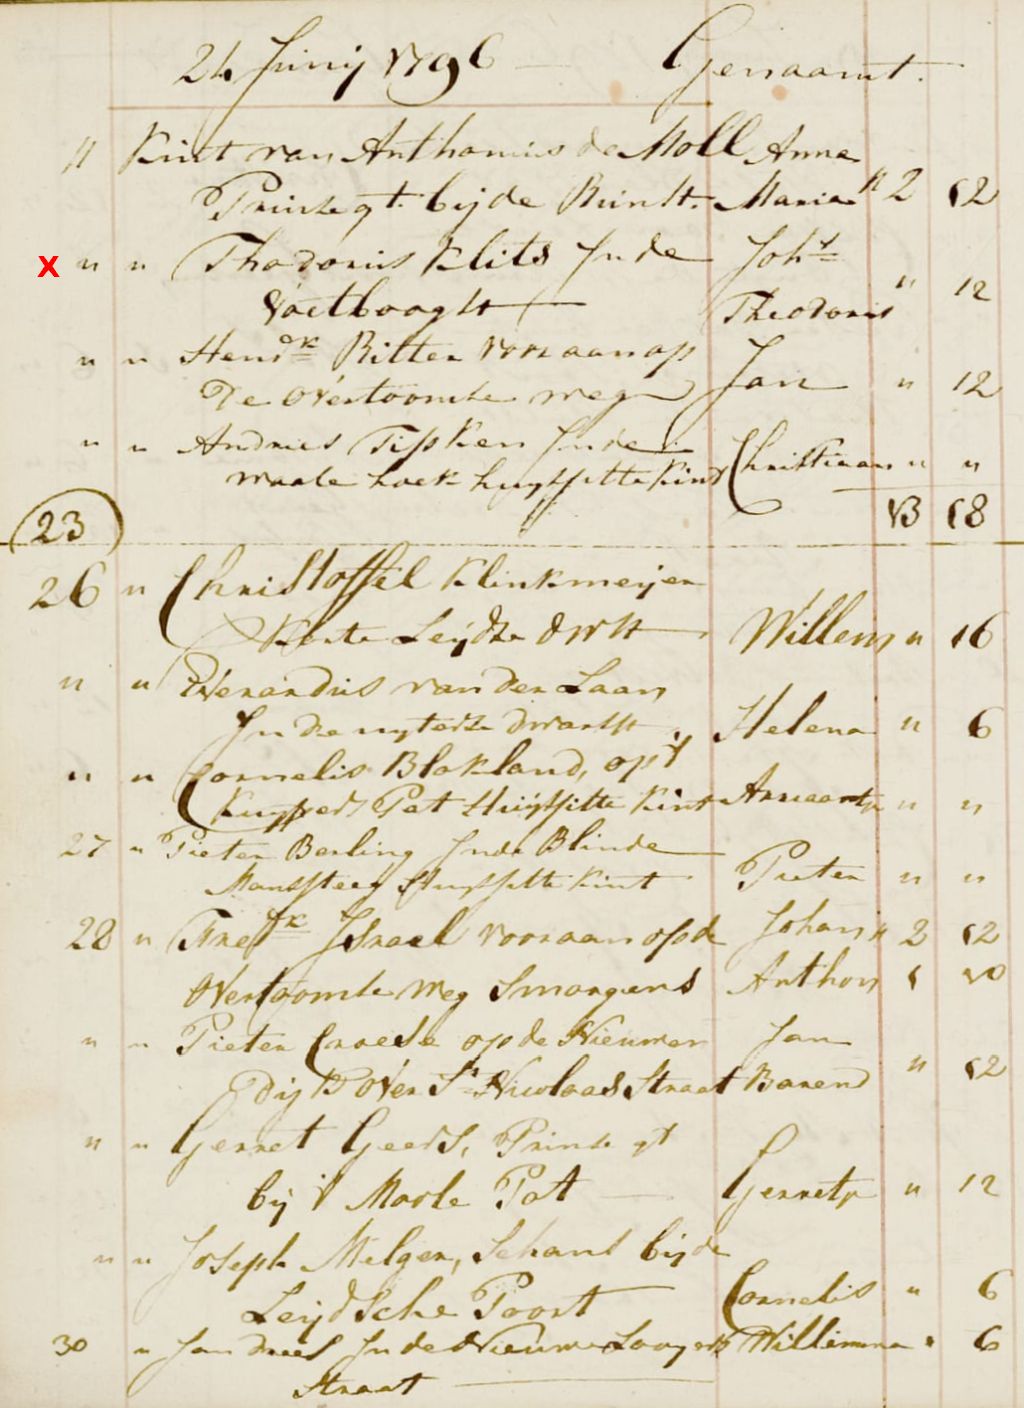 24 Junij 1796 — Genaamt.
11 Kint van Anthonius de Moll Anna
Prinse gt. bij de Runst. Maria " 2 12
X " " Thadorus Klits In de Johs
Voetboogst Theodorus " 12
" " Hendk Ritter vooraan op
De Overtoomse weg Jan " 12
" " Andries Tissken In de
waale hoek huyssitte Kind Christiaan " "
13 18
23
26 " Christoffel Klinkmeijer
Korte Leydse dwst Willem " 16
" " Everardus van der Laan
In de uyterse dwarsst Helena " 6
" " Cornelis Blokland, op 't
Kuypers Pat Huijssitte Kint Annaantje " "
27 " Pieter Berling In de Blinde
Manssteeg Huyssitte Kint Pieter " "
28 " Fredk Israel vooraan op de Johan " 2 12
Overtoomse weg Smorgens Anthon 1 10
" " Pieter Croese op de Nieuwen Jan
dijk over St Nicolaas Straat Barend " 12
" " Gerret Geerds, Prinse gt
bij 't Moole Pat Gerretje " 12
" " Joseph Melger, Schans bij de
Leijdsche Poort Cornelis " 6
30 " Jan Drees In de Nieuwe Looyers Willimina " 6
Straat